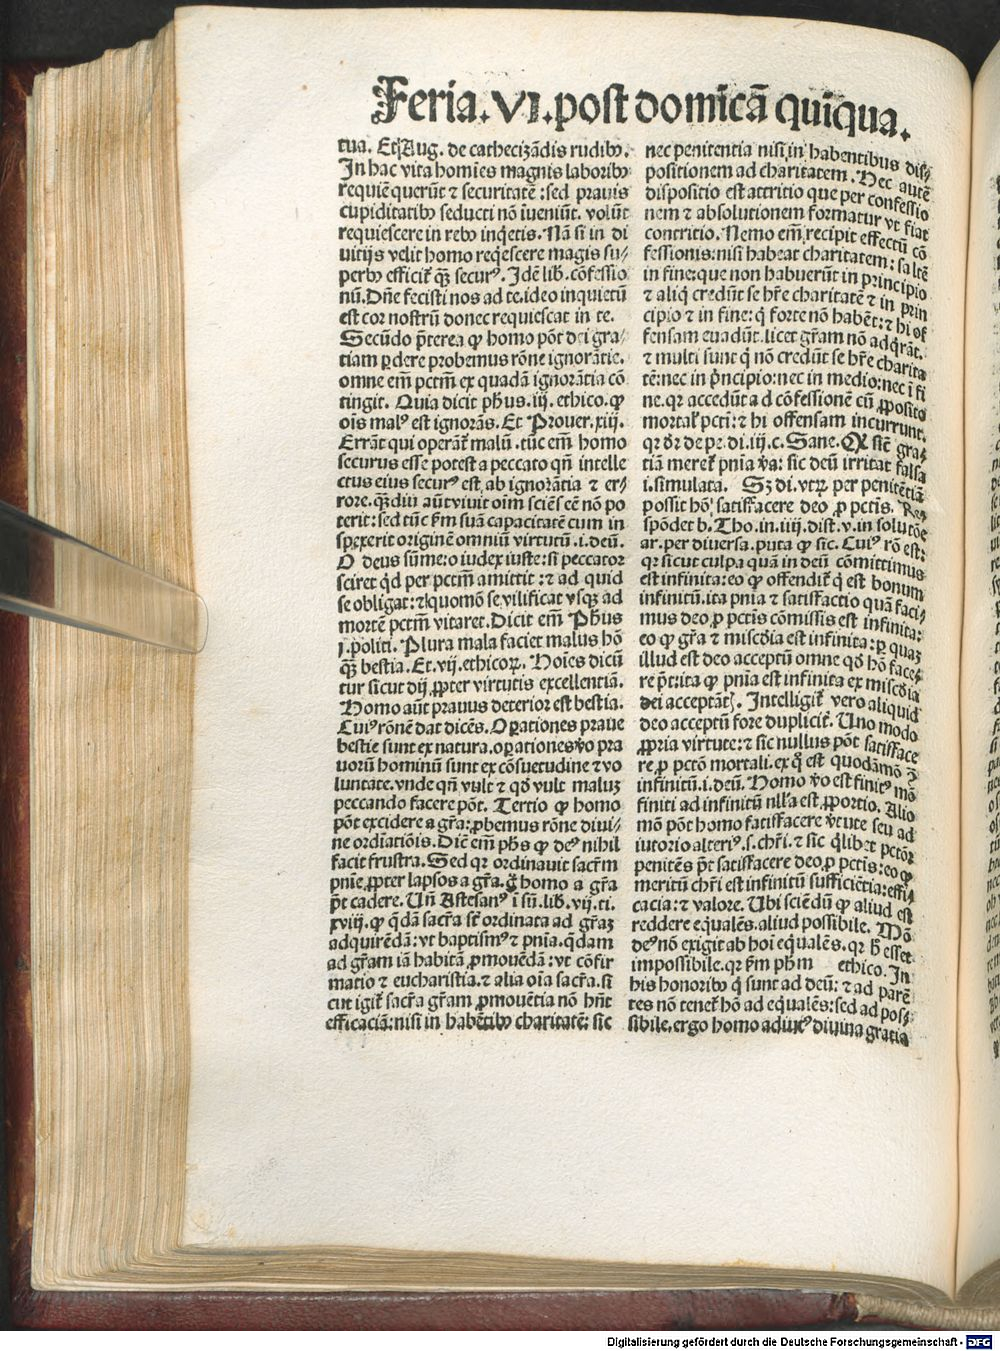 Feria.VI.post domicã quiqua.
tua. Et Aug. de cathecizãdis rudibꝰ.
In hac vita homĩes magnis laboribꝰ
requiẽ querũt ⁊ securitatẽ : sed prauis
cupiditatibꝰ seducti nõ ĩueniũt. volũt
requiescere in rebꝰ inq̇etis. Nã si in di
uitijs velit homo reqẽscere magis su⸗
perbꝰ efficit᷑ qꝫ securꝰ. Idẽ lib. cõfessio
nũ. Dñe fecisti nos ad te. ideo inquietũ
est cor nostrũ donec requiescat in te.
Secũdo p̃terea ꝙ homo põt dei gra⸗
tiam ꝑdere probemus rõne ignorãtie.
omne em̃ pctm̃ ex quadã ignorãtia cõ
tingit. Quia dicit phus .iij. ethico. ꝙ
oĩs malꝰ est ignorãs. Et Prouer. xiij.
Errãt qui operãt᷑ malũ. tũc em̃ homo
securus esse potest a peccato qñ intelle
ctus eius securꝰ est ab ignorãtia ⁊ er⸗
rore. qꝫdiu aũt viuit oĩm sciẽs eẽ nõ po
terit : sed tũc ẜm suã capacitatẽ cum in
spexerit originẽ omniũ virtutũ .i. deũ.
O deus sũme: o iudex iuste: si peccator
sciret qd̓ per pctm̃ amittit : ⁊ ad quid
se obligat: ⁊ quomõ se vilificat vsqꝫ ad
mortẽ pctm̃ vitaret. Dicit em̃ Phus
j. politi. Plura mala faciet malus hõ
qꝫ bestia. Et .vij. ethicoꝝ. Hoĩes dicũ
tur sicut dij ꝓpter virtutis excellentiã.
Homo aũt prauus deterior est bestia.
Cuiꝰ rõnẽ dat dicẽs. Oꝑationes praue
bestie sunt ex natura. oꝑationes ṽo pra
uorũ hominũ sunt ex cõsuetudine ⁊ vo
luntate. vnde qñ vult ⁊ qď vult maluꝫ
peccando facere põt. Tertio ꝙ homo
põt excidere a gr̃a: ꝓbemus rõne diui⸗
ne ordĩatiõis. Dic̃ em̃ phs ꝙ deꝰ nihil
facit frustra. Sed qꝛ ordinauit sacr̃m
pnĩe ꝓpter lapsos a gr̃a. g̃ homo a gr̃a
p̃t cadere. Uñ Astesanꝰ ĩ sũ. lib. vij. ti.
xviij. ꝙ q̇dã sacr̃a st̃ ordinata ad gr̃aꝫ
adquirẽdã: vt baptismꝰ ⁊ pnia. q̇dam
ad gr̃am iã habitã ꝓmouẽdã : vt cõfir
matio ⁊ eucharistia. ⁊ alia oĩa sacr̃a. si
cut igit᷑ sacr̃a gr̃am ꝓmouẽtia nõ hñt
efficaciã: nisi in habẽtibꝰ charitatẽ: sic
nec penitentia nisi in habentibus dis⸗
positionem ad charitatem. Nec autẽ
dispositio est attritio que per confessio
nem ⁊ absolutionem formatur vt fiat
contritio. Nemo em̃ recipit effectũ cõ
fessionis: nisi habeat charitatem: saltẽ
in fine: que non habuerũt in principio
⁊ aliq̇ credũt se hr̃e charitatẽ ⁊ in prin
cipio ⁊ in fine: q̇ forte nõ habẽt: ⁊ hi of
fensam euadũt. licet gr̃am nõ adq̇rãt.
⁊ multi sunt q̇ nõ credũt se hr̃e charita
tẽ: nec in p̃ncipio: nec in medio: nec ĩ fi
ne. qꝛ accedũt ad cõfessionẽ cũ ꝓposito
mortal᷑ pcti: ⁊ hi offensam incurrunt.
qꝛ d̓r de pe. di. iij. c. Sane. Qꝛ sic̃ gra⸗
tiã meret᷑ pnia ṽa: sic deũ irritat falsa
.i. simulata. Sꝫ di. vtꝝ per penitẽtiã
possit hõ satisfacere deo ꝓ pctis. Res
spõdet b. Tho. in .iiij. dist. v. in solutõe
ar. per diuersa. puta ꝙ sic. Cuiꝰ rõ est:
qꝛ sicut culpa quã in deũ cõmittimus
est infinita: eo ꝙ offendit᷑ q̇ est bonum
infinitũ. ita pnia ⁊ satisfactio quã faci⸗
mus deo ꝓ pctis cõmissis est infinita:
eo ꝙ gr̃a ⁊ misc̃dia est infinita: ꝑ quaꝫ
illud est deo acceptũ omne qď hõ face⸗
re p̃t: ita ꝙ pnia est infinita ex misc̃dia
dei acceptãt᷑. Intelligit᷑ vero aliquid
deo acceptũ fore duplicit̃. Uno modo
ꝓpria virtute: ⁊ sic nullus põt satisface
re ꝓ pctõ mortali. ex q̇ est quodãmõ ĩ
infinitũ .i. deũ. Homo ṽo est finitꝰ mõ
finiti ad infinitũ nlla est ꝓportio. Alio
mõ põt homo satisfacere v̓tute seu ad
iutorio alteriꝰ .s. chr̃i. ⁊ sic q̇libet pctõr
penitẽs p̃t satisfacere deo ꝓ pctis: eo ꝙ
meritũ chr̃i est infinitũ sufficiẽtia: effi
cacia: ⁊ valore. Ubi sciẽdũ ꝙ aliud est
reddere equalẽs. aliud possibile. Mõ
deꝰ nõ exigit ab hoĩ equalẽs. qꝛ h̓ esset
impossibile. qꝛ ẜm phm̃ ethico. In
his honoribꝰ q̇ sunt ad deũ: ⁊ ad parẽ
tes nõ tenet᷑ hõ ad equalẽs: sed ad pos⸗
sibile. ergo homo adiutꝰ diuina gratia
Digitalisierung gefördert durch die Deutsche Forschungsgemeinschaft - DFG